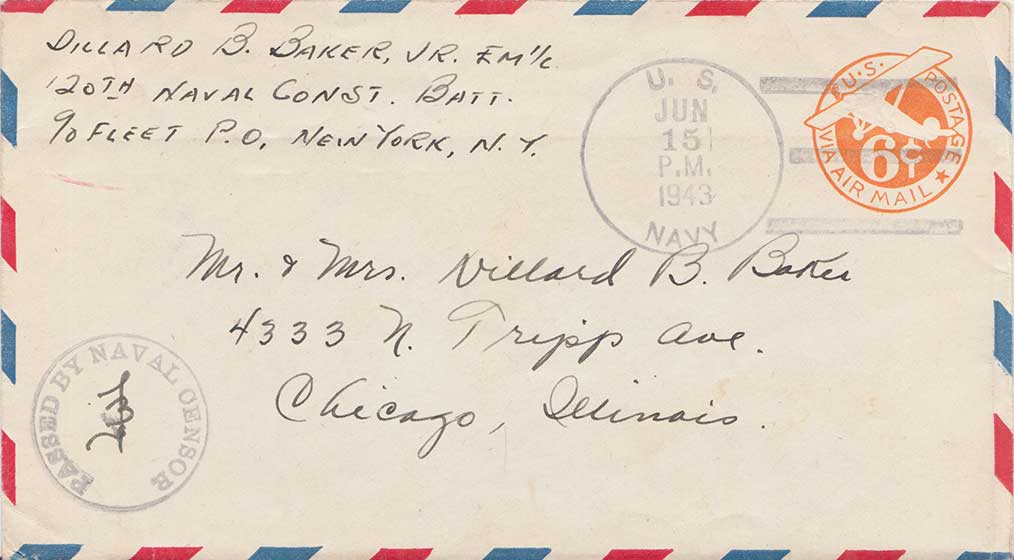 DILLARD B. BAKER, JR. EM 1/c
120TH NAVAL CONST. BATT.
c/o FLEET P.O. NEW YORK, N.Y.
U. S.
JUN
15
P.M.
1943
NAVY
U.S. POSTAGE
6¢
VIA AIR MAIL
Mr. & Mrs. Dillard B. Baker
4333 N. Tripp Ave.
Chicago, Illinois.
PASSED BY NAVAL CENSOR